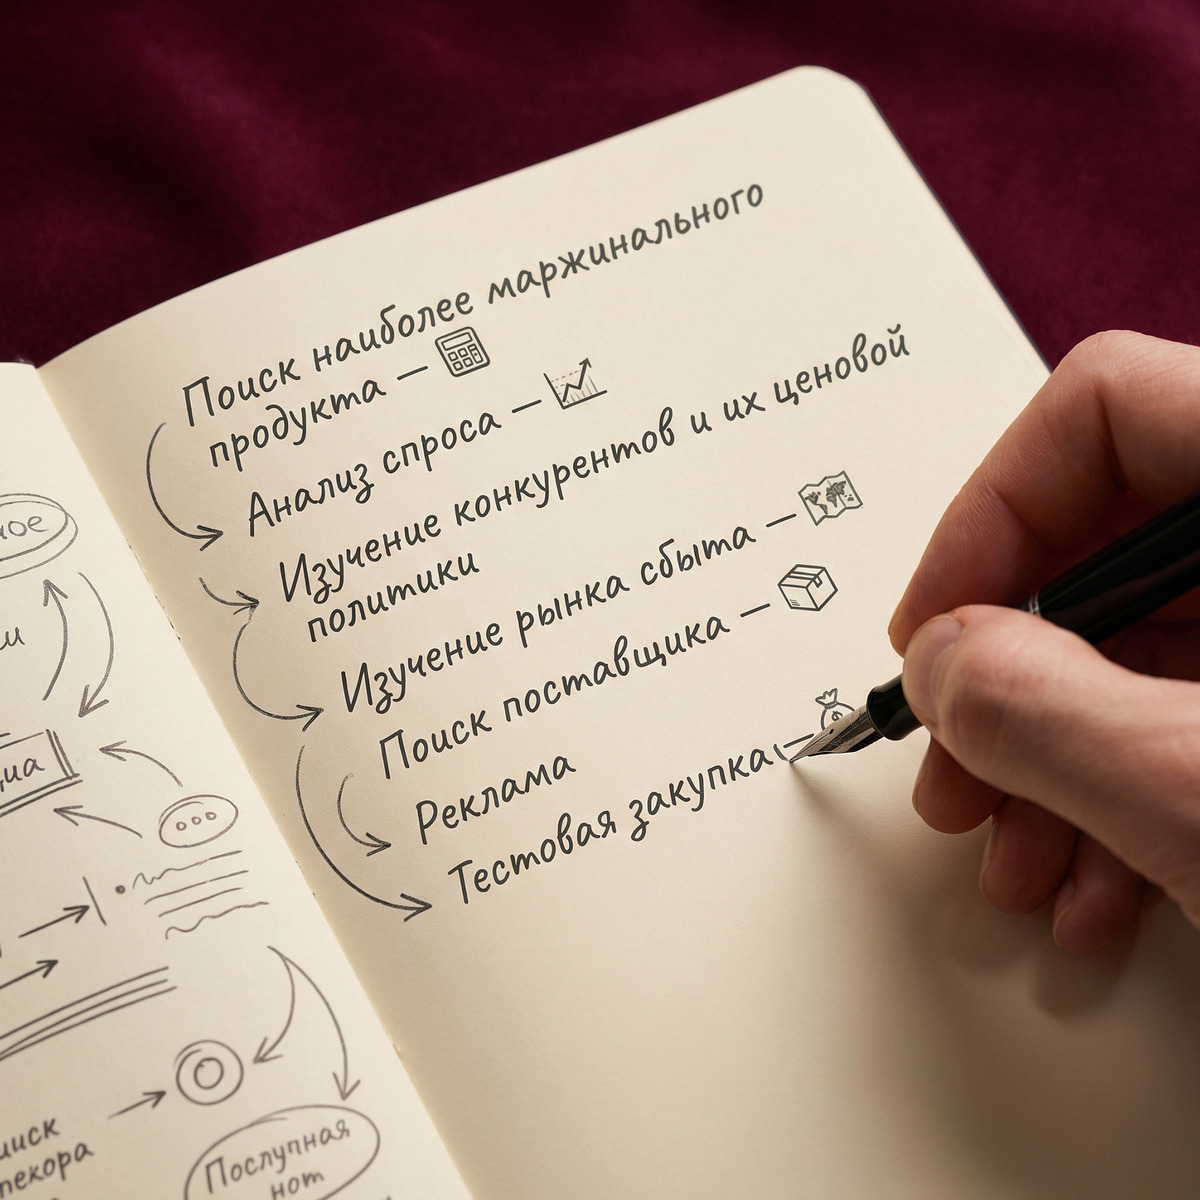 Поиск наиболее маржинального
продукта —
Анализ спроса —
Изучение конкурентов и их ценовой
политики
Изучение рынка сбыта —
Поиск поставщика —
Реклама
Тестовая закупка —
Послупная
нот